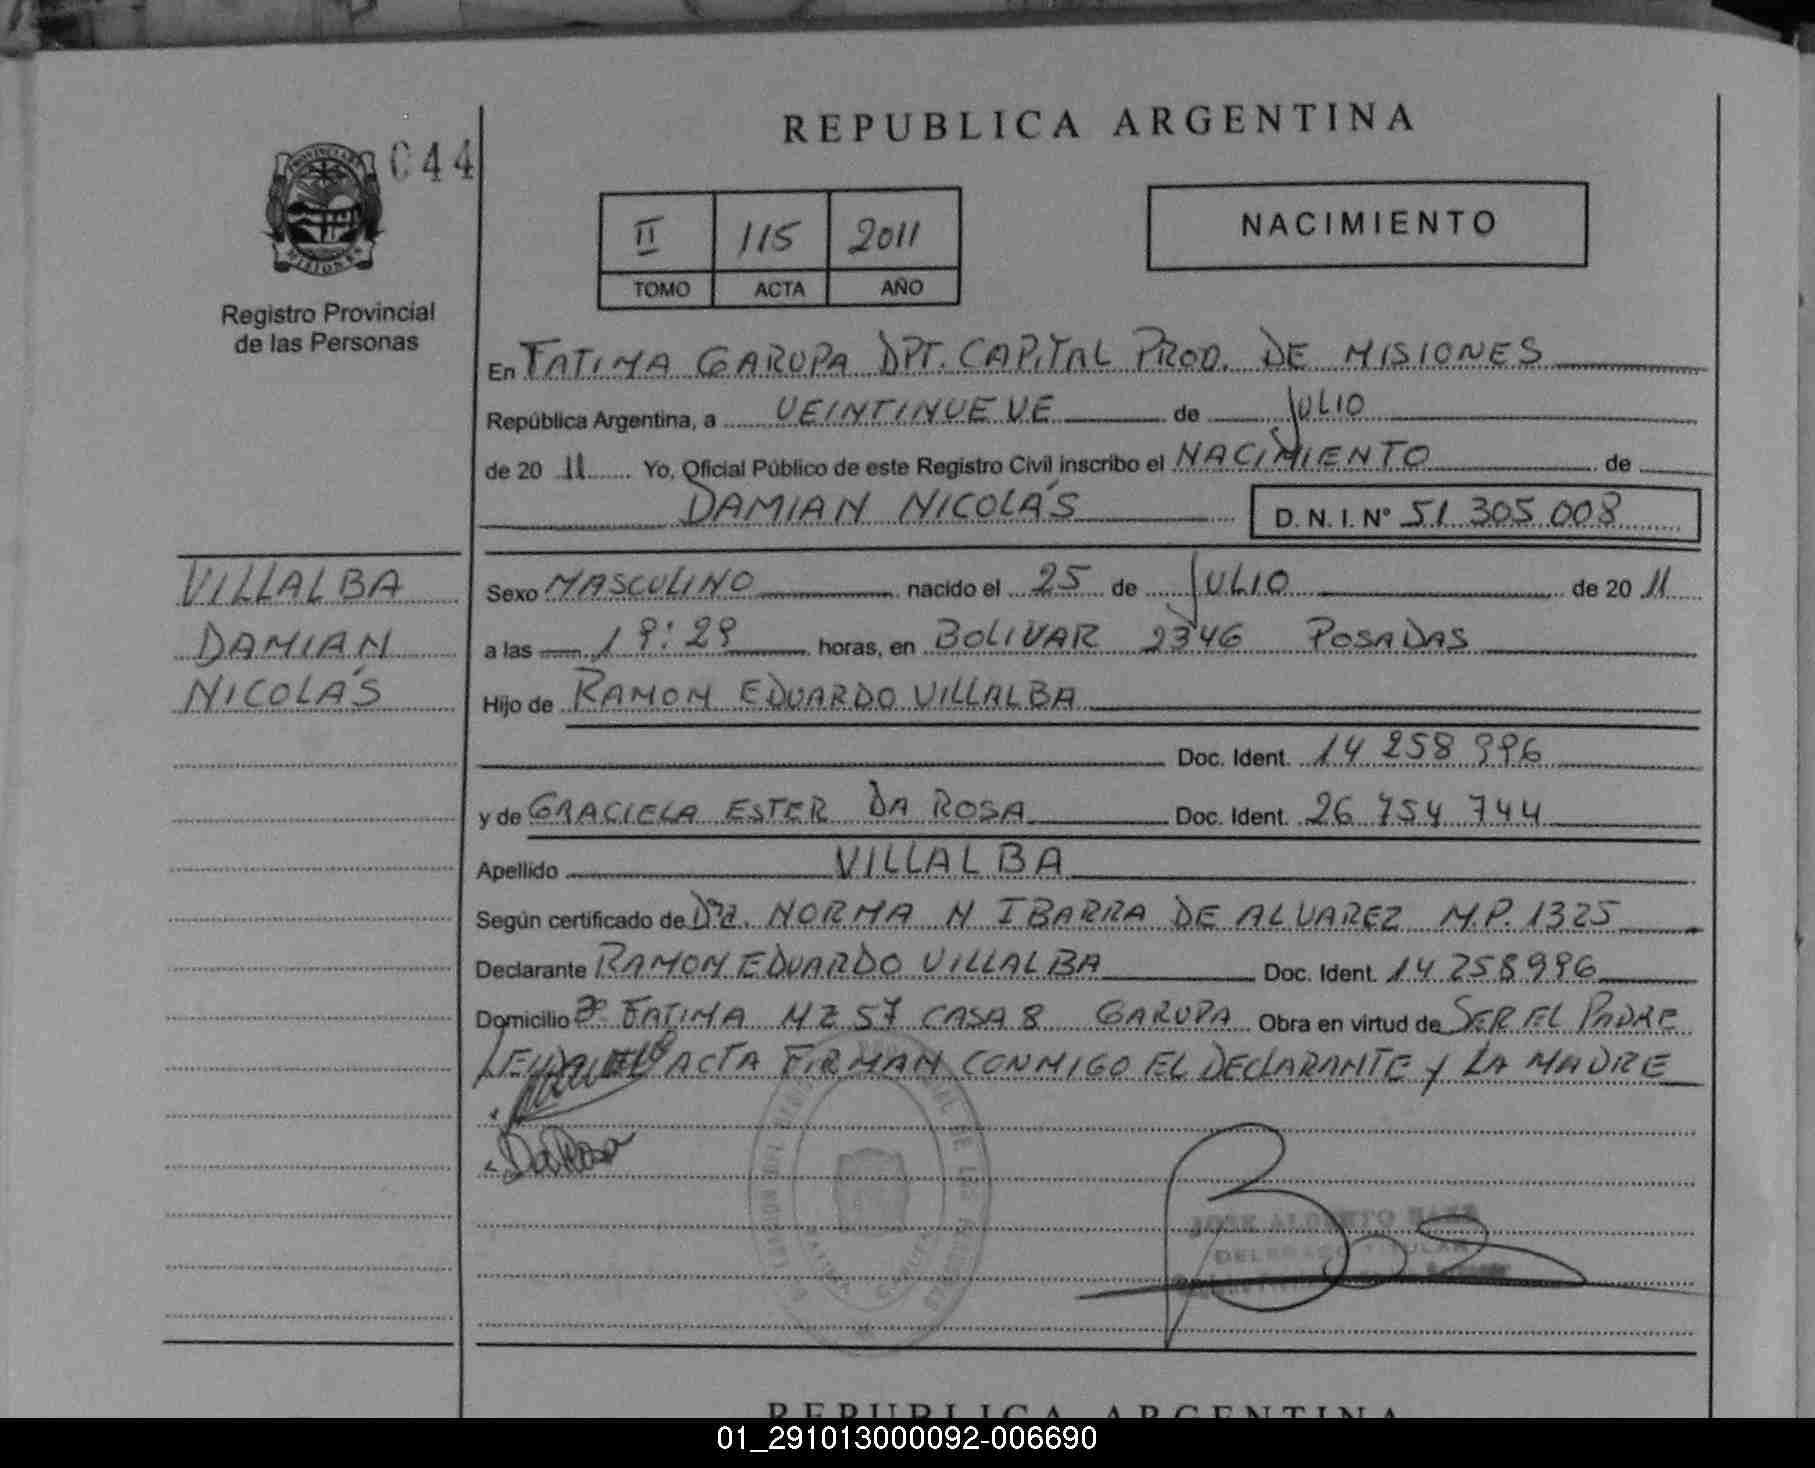 REPUBLICA ARGENTINA
044
PROVINCIA DE MISIONES
Registro Provincial
de las Personas
II 115 2011
TOMO ACTA AÑO
NACIMIENTO
En FATIMA GARUPA DPT. CAPITAL PROV. DE MISIONES
República Argentina, a VEINTINUEVE de JULIO
de 20 11 Yo, Oficial Público de este Registro Civil inscribo el NACIMIENTO de
DAMIAN NICOLÁS D. N. I. Nº 51 305 008
VILLALBA
DAMIAN
NICOLÁS
Sexo MASCULINO nacido el 25 de JULIO de 20 11
a las 19:29 horas, en BOLIVAR 2346 POSADAS
Hijo de RAMON EDUARDO VILLALBA
Doc. Ident. 14 258 996
y de GRACIELA ESTER DA ROSA Doc. Ident. 26 754 744
Apellido VILLALBA
Según certificado de Dra. NORMA N IBARRA DE ALVAREZ M.P. 1325
Declarante RAMON EDUARDO VILLALBA Doc. Ident. 14 258996
Domicilio Bº FATIMA MZ 57 CASA 8 GARUPA Obra en virtud de SER EL PADRE
LEIDA EL ACTA FIRMAN CONMIGO EL DECLARANTE y LA MADRE
Da Rosa
JOSE ALBERTO
DELEGADO TITULAR
REPUBLICA ARGENTINA
01_291013000092-006690